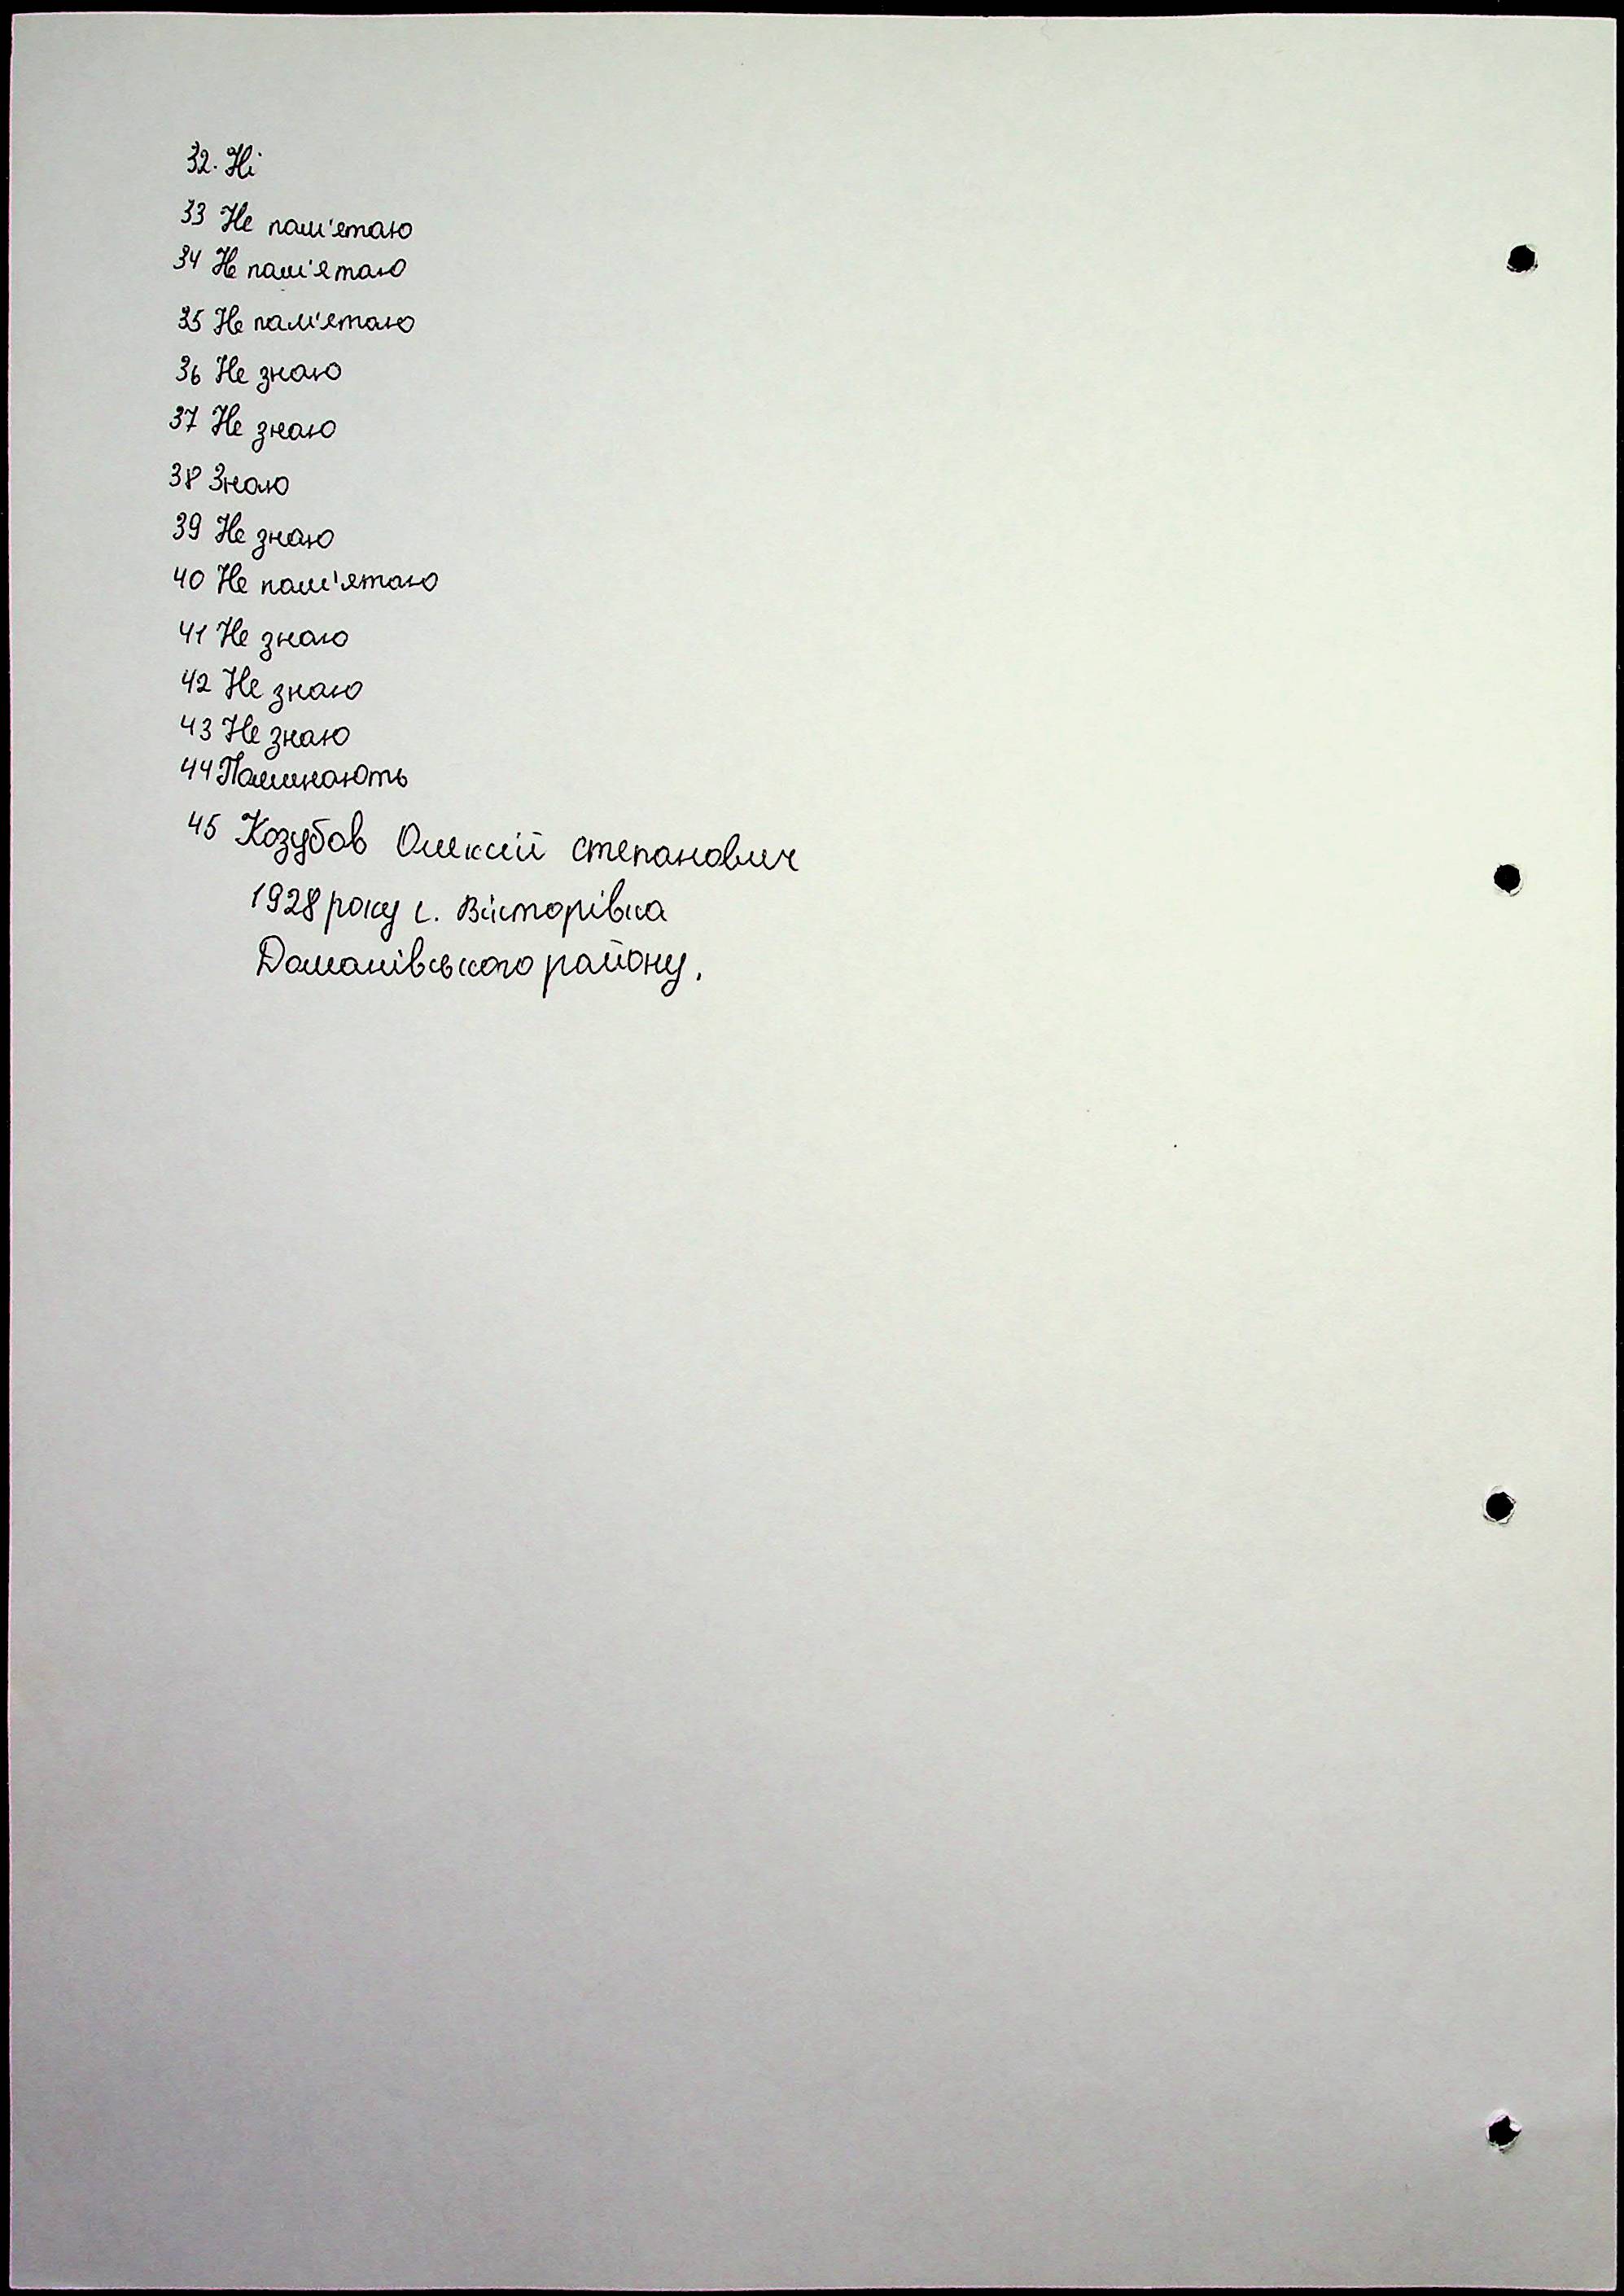 32. Ні
33 Не пам'ятаю
34 Не пам'ятаю
35 Не пам'ятаю
36 Не знаю
37 Не знаю
38 Знаю
39 Не знаю
40 Не пам'ятаю
41 Не знаю
42 Не знаю
43 Не знаю
44 Поминають
45 Козубов Олексій степанович
1928 року с. Вікторівка
Доманівського району.